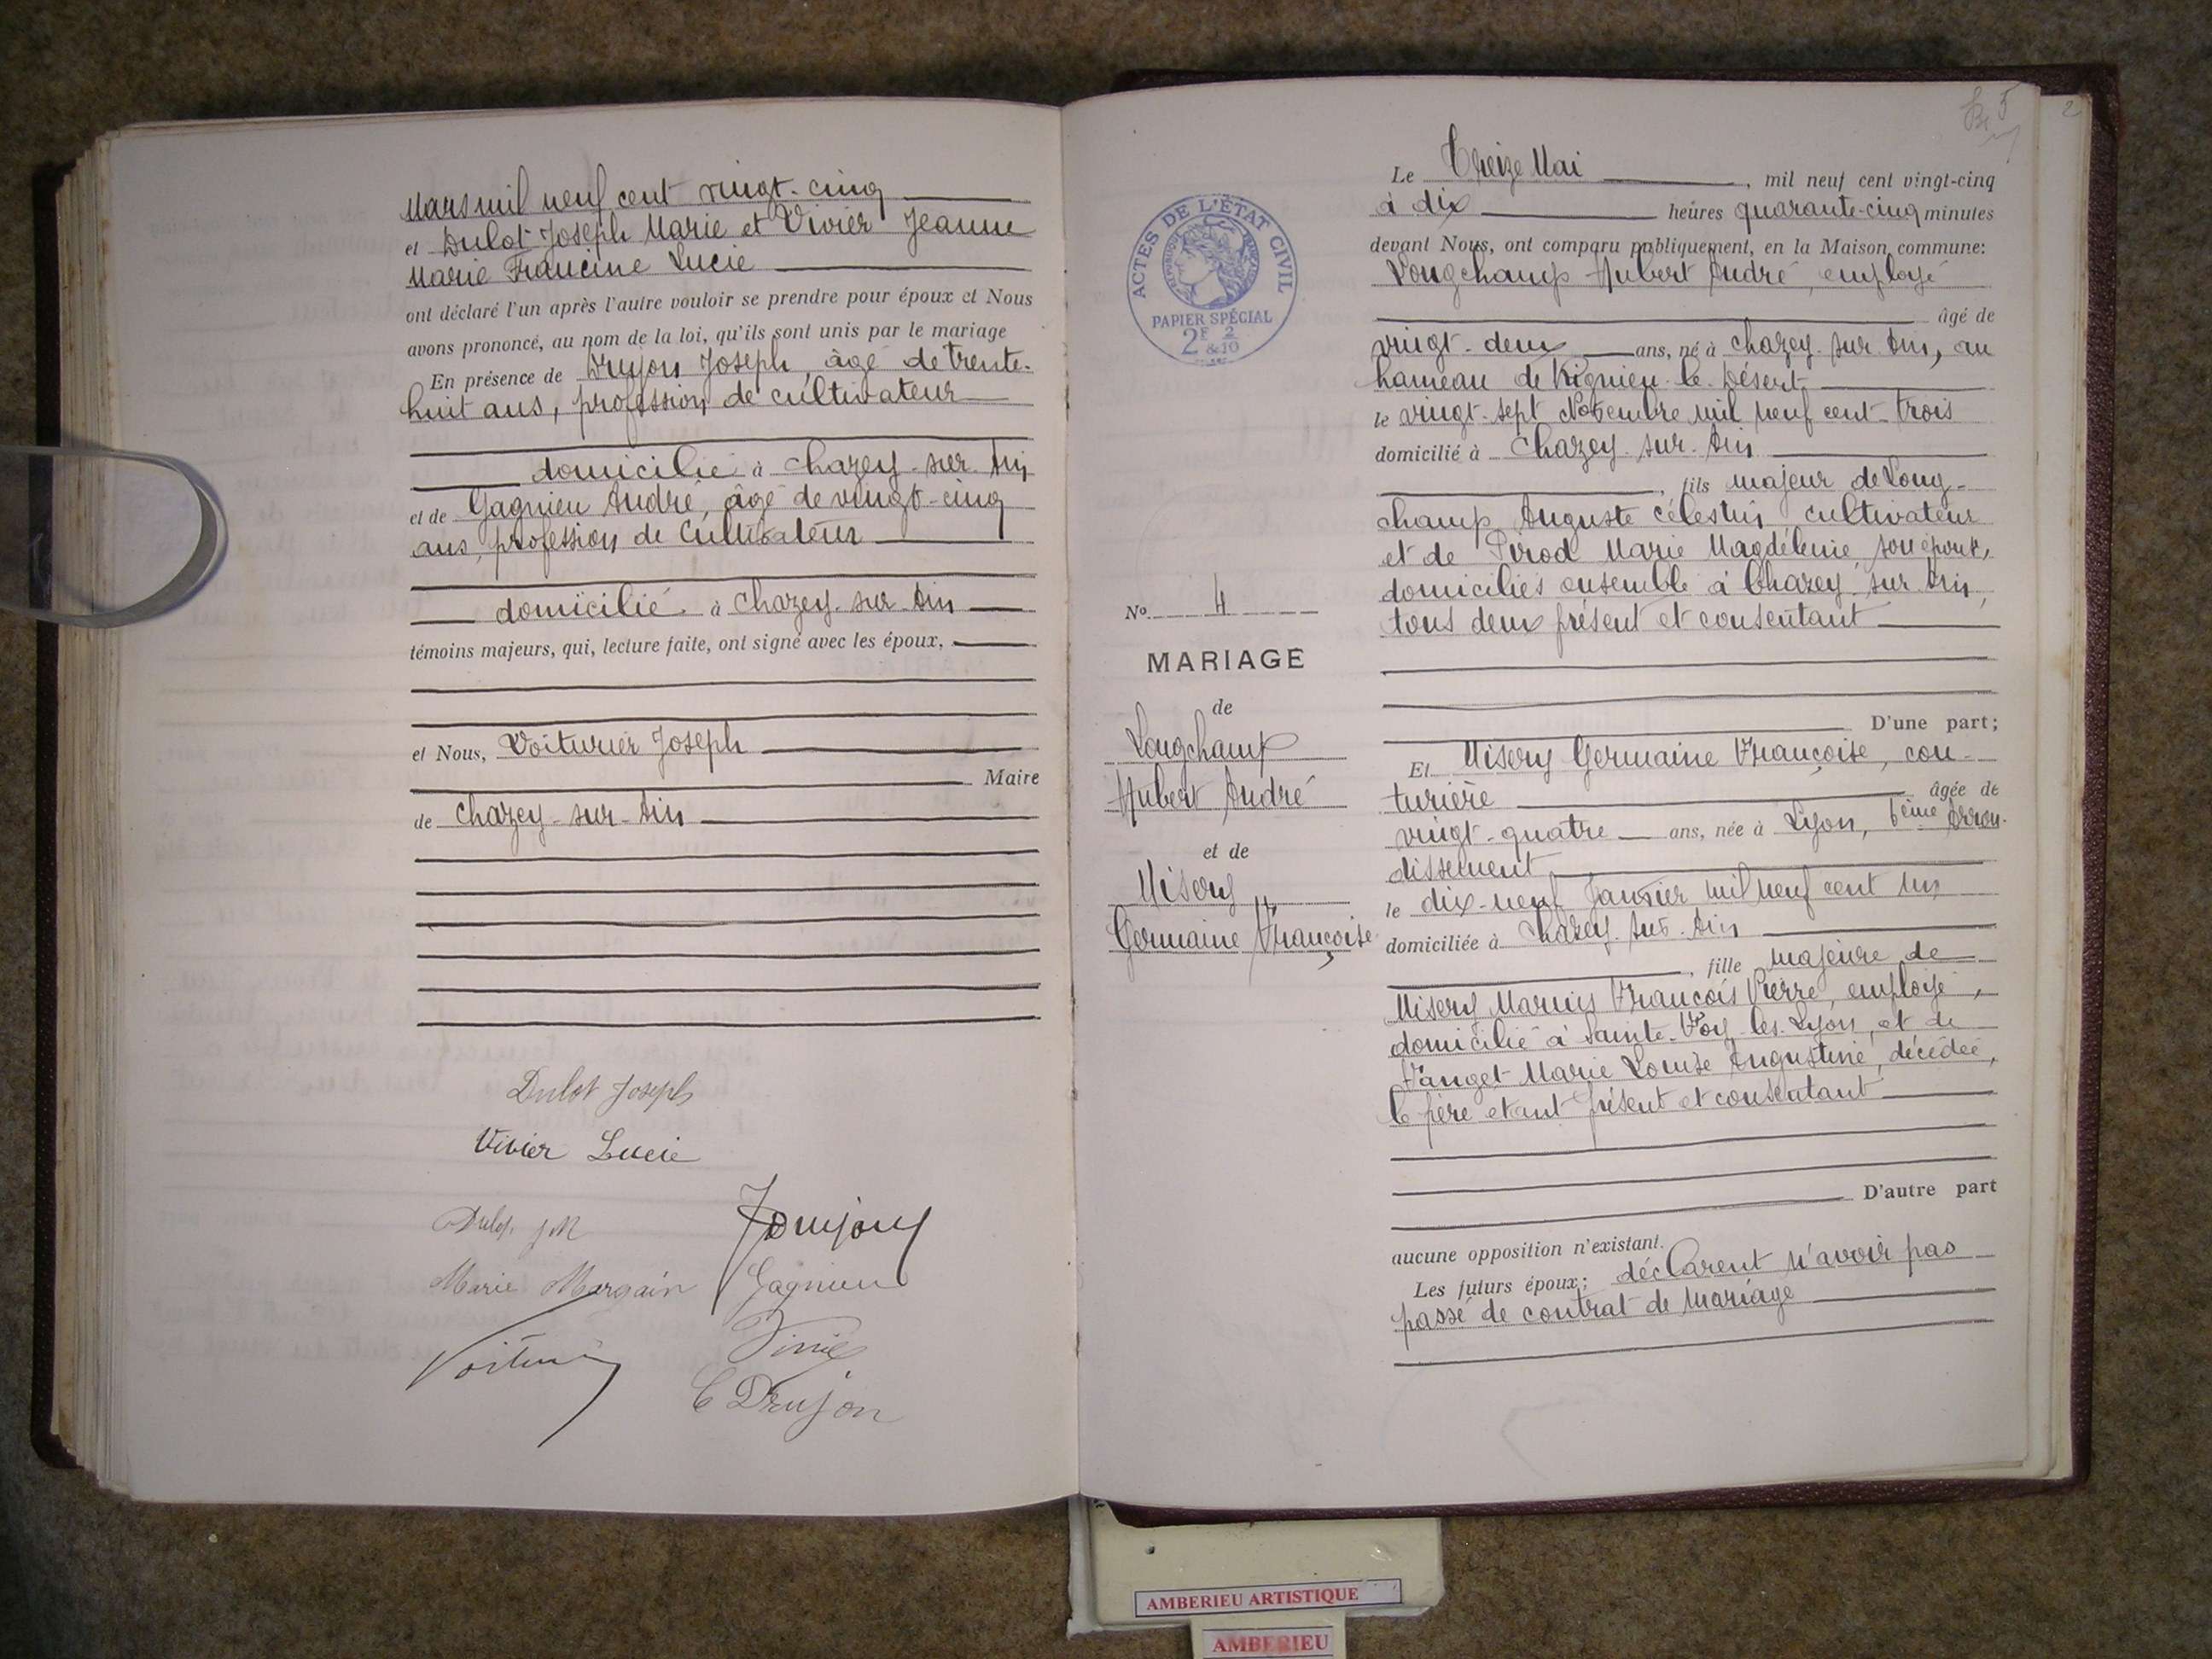 Mars mil neuf cent vingt-cinq
et Dulot Joseph Marie et Vivier Jeanne
Marie Francine Lucie
ont déclaré l'un après l'autre vouloir se prendre pour époux et Nous
avons prononcé, au nom de la loi, qu'ils sont unis par le mariage
En présence de Drujon Joseph, âgé de trente-
huit ans, profession de cultivateur
domicilié à Chazey-sur-Ain
et de Gagnieu André, âgé de vingt-cinq
ans, profession de Cultivateur
domicilié à Chazey-sur-Ain
témoins majeurs, qui, lecture faite, ont signé avec les époux,
et Nous, Voiturier Joseph
Maire
de Chazey-sur-Ain
Dulot Joseph
Vivier Lucie
Dulot JM
Marie Margain
Gagnieu
C Drujon
5
2
ACTES DE L'ÉTAT CIVIL
PAPIER SPÉCIAL
2F 2
&10
No 4
MARIAGE
de
Longchamp
Hubert André
et de
Misery
Germaine Françoise
Le Treize Mai, mil neuf cent vingt-cinq
à dix heures quarante-cinq minutes
devant Nous, ont comparu publiquement, en la Maison commune:
Longchamp Hubert André, employé
âgé de
vingt-deux ans, né à Chazey-sur-Ain, au
hameau de Rignieu-le-Désert
le vingt-sept Novembre mil neuf cent trois
domicilié à Chazey-sur-Ain
, fils majeur de Long-
champ Auguste Célestin cultivateur
et de Pirod Marie Magdeleine, son épouse,
domiciliés ensemble à Chazey-sur-Ain,
tous deux présent et consentant
D'une part;
Et Misery Germaine Françoise, cou-
turière âgée de
vingt-quatre ans, née à Lyon, 6ème Arron-
dissement
le dix-neuf Janvier mil neuf cent un
domiciliée à Chazey-sur-Ain
, fille majeure de
Misery Marius François Pierre, employé,
domicilié à Sainte-Foy-les-Lyon, et de
Marie Louise Augustine, décédée,
le père étant présent et consentant
D'autre part
aucune opposition n'existant.
Les futurs époux; déclarent n'avoir pas
passé de contrat de mariage
AMBERIEU ARTISTIQUE
AMBERIEU